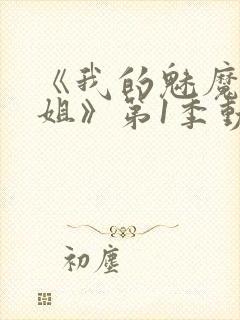 《我的魅魔
姐》第1季動
初塵